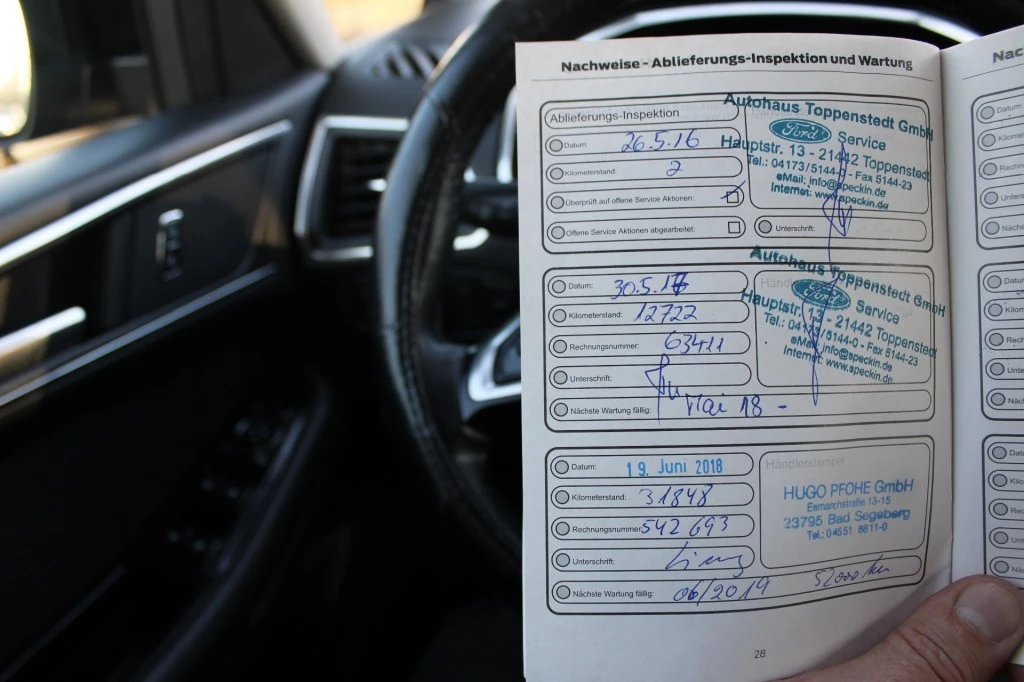 Nachweise - Ablieferungs-Inspektion und Wartung
Ablieferungs-Inspektion
Datum: 26.5.16
Kilometerstand: 2
Überprüft auf offene Service Aktionen:
Offene Service Aktionen abgearbeitet:
Autohaus Toppenstedt GmbH
Ford Service
Hauptstr. 13 - 21442 Toppenstedt
Tel.: 04173/5144-0 - Fax 5144-23
eMail: info@speckin.de
Internet: www.speckin.de
Unterschrift:
Datum: 30.5.17
Kilometerstand: 12722
Rechnungsnummer: 63411
Unterschrift:
Nächste Wartung fällig: Mai 18 -
Autohaus Toppenstedt GmbH
Ford Service
Hauptstr. 13 - 21442 Toppenstedt
Tel.: 04173/5144-0 - Fax 5144-23
eMail: info@speckin.de
Internet: www.speckin.de
Datum: 19. Juni 2018
Kilometerstand: 31848
Rechnungsnummer: 542 693
Unterschrift:
Nächste Wartung fällig: 06/2019 52000 km
Händlerstempel
HUGO PFOHE GmbH
Esmarchstraße 13-15
23795 Bad Segeberg
Tel.: 04551 8811-0
28
Nac